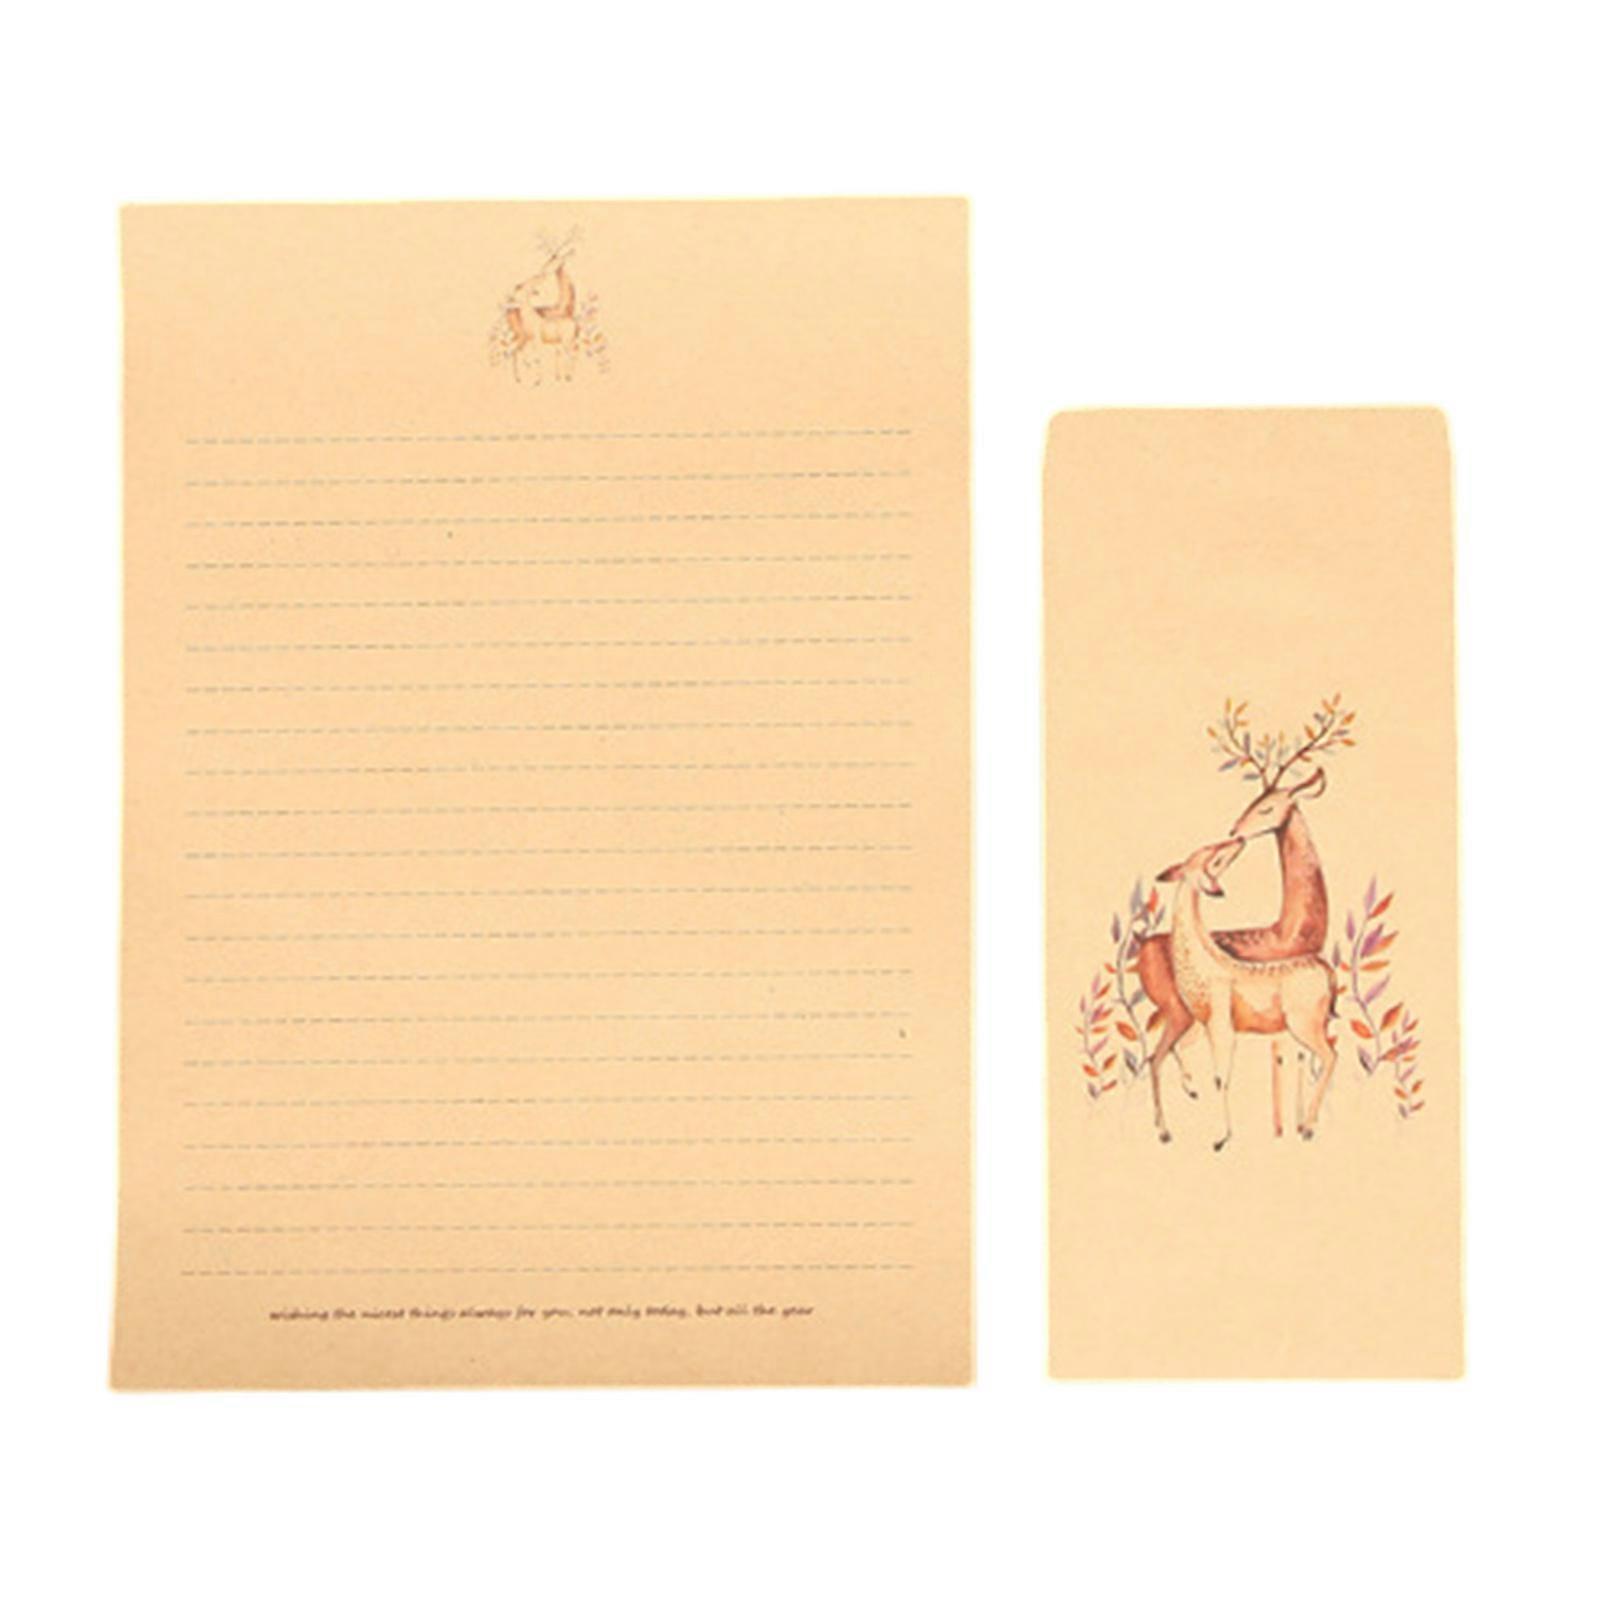 wishing the nicest things always for you, not only today, but all the year